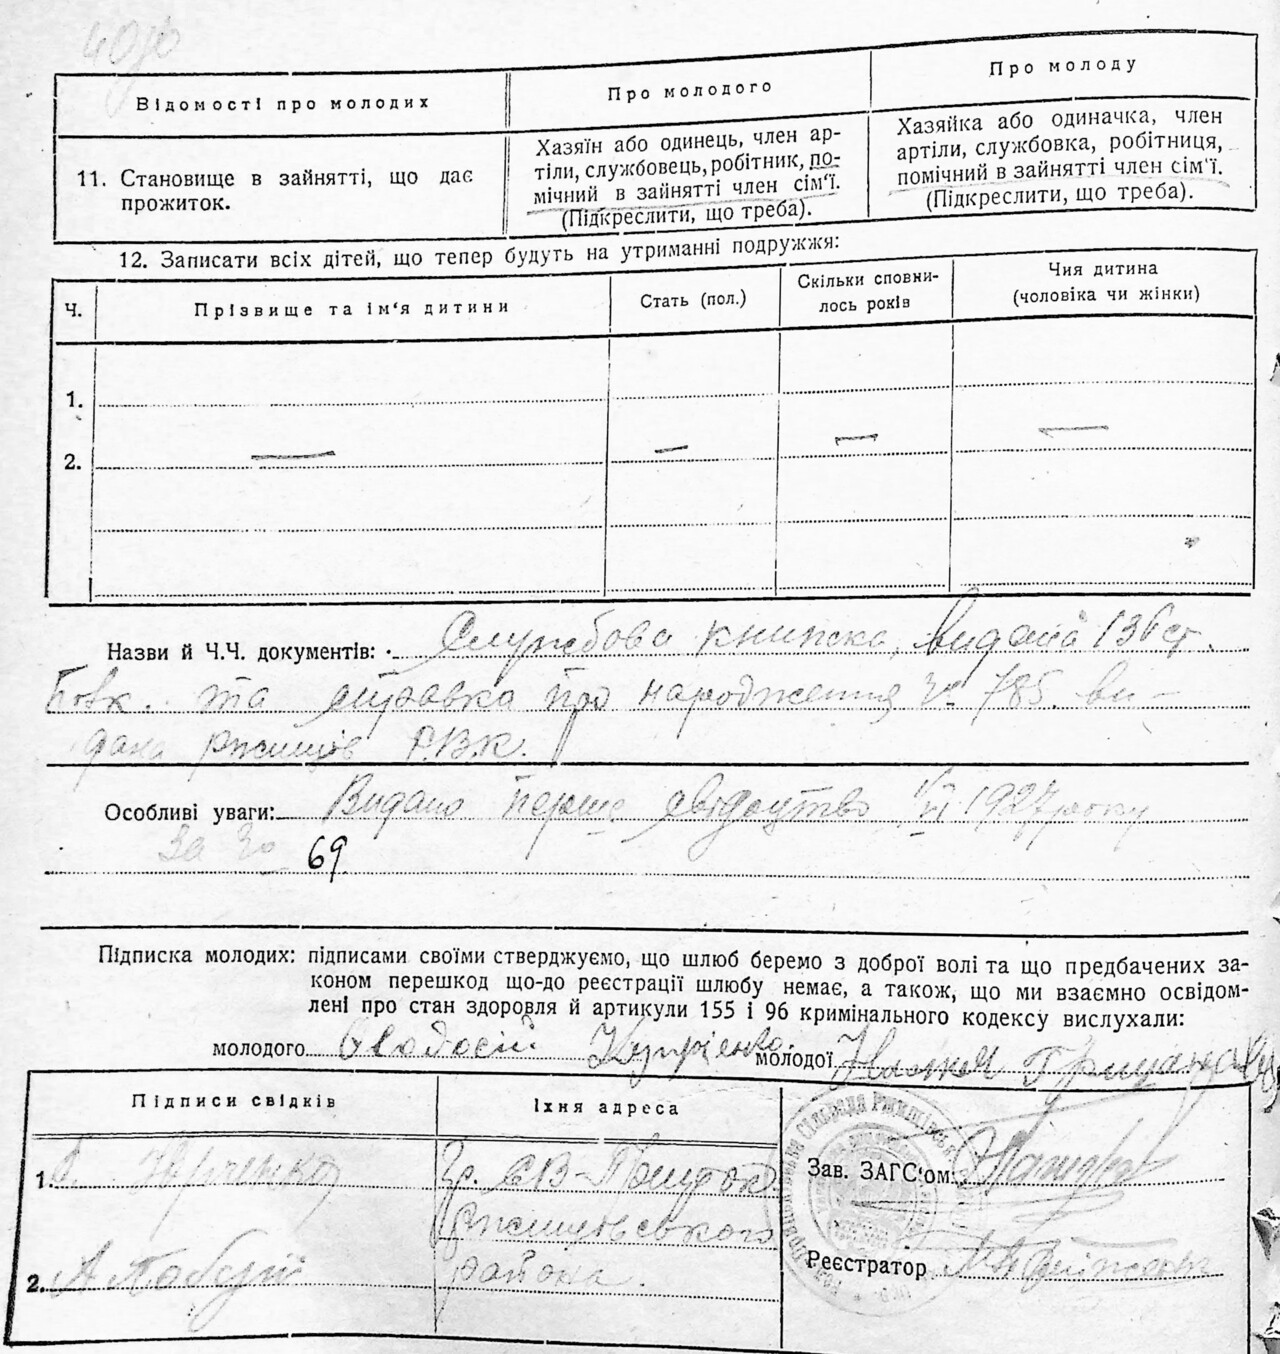 Відомості про молодих
Про молодого
Про молоду
11. Становище в зайнятті, що дає
прожиток.
Хазяїн або одинець, член ар-
тіли, службовець, робітник, по-
мічний в зайнятті член сім'ї.
(Підкреслити, що треба).
Хазяйка або одиначка, член
артіли, службовка, робітниця,
помічний в зайнятті член сім'ї.
(Підкреслити, що треба).
12. Записати всіх дітей, що тепер будуть на утриманні подружжя:
Ч.
Прізвище та ім'я дитини
Стать (пол.)
Скільки сповни-
лось років
Чия дитина
(чоловіка чи жінки)
1.
2.
Назви й Ч.Ч. документів: Службова книжка, видана 136 ст.
та справка про народження 785 ви-
дана Ржищів Р.В.К.
Особливі уваги: Видано перше свідоцтво 1927 року
За № 69
Підписка молодих: підписами своїми стверджуємо, що шлюб беремо з доброї волі та що предбачених за-
коном перешкод що-до реєстрації шлюбу немає, а також, що ми взаємно освідом-
лені про стан здоровля й артикули 155 і 96 кримінального кодексу вислухали:
молодого
молодої
Підписи свідків
Їхня адреса
1.
Ржищівського
2.
района.
Зав. ЗАГС'ом
Реєстратор